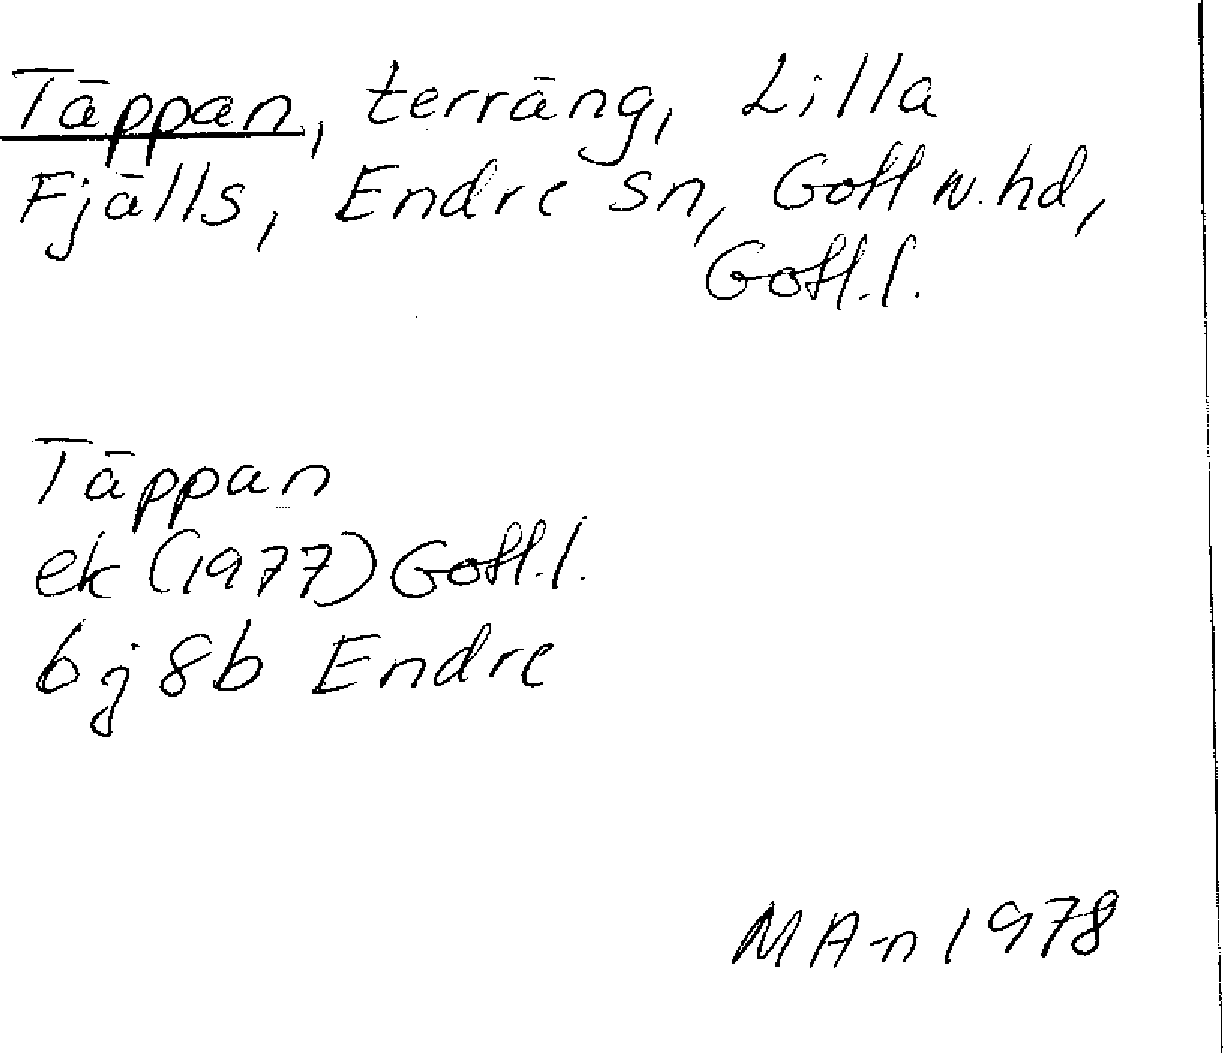 Täppan, terräng, Lilla
Fjälls, Endre sn, Gotl n. hd,
Gotl. l.
Täppan
ek (1977) Gotl. l.
6j 8b Endre
MAn 1978